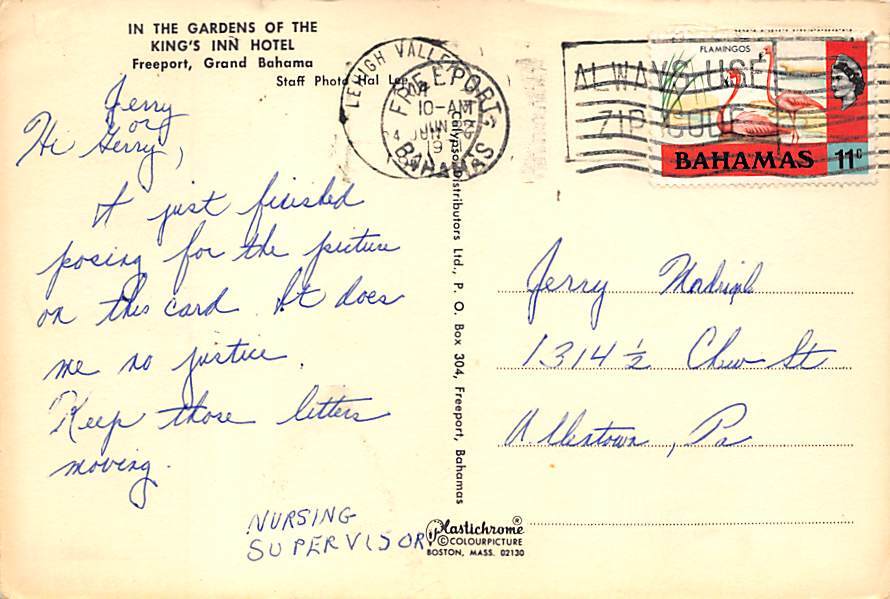 IN THE GARDENS OF THE
KING'S INN HOTEL
Freeport, Grand Bahama
Staff Photo Hal
Jerry
or
Hi Gerry,
I just finished
posing for the picture
on this card. It does
me no justice.
Keep those letters
moving.
NURSING
SUPERVISOR
LEHIGH VALLEY
FREEPORT
10-AM
JUN
19
BAHAMAS
Calypso Distributors Ltd., P. O. Box 304, Freeport, Bahamas
Plastichrome®
© COLOURPICTURE
BOSTON, MASS. 02130
ALWAYS USE
ZIP CODE
FLAMINGOS
BAHAMAS 11c
Jerry
1314 ½ Chew St
Allentown, Pa